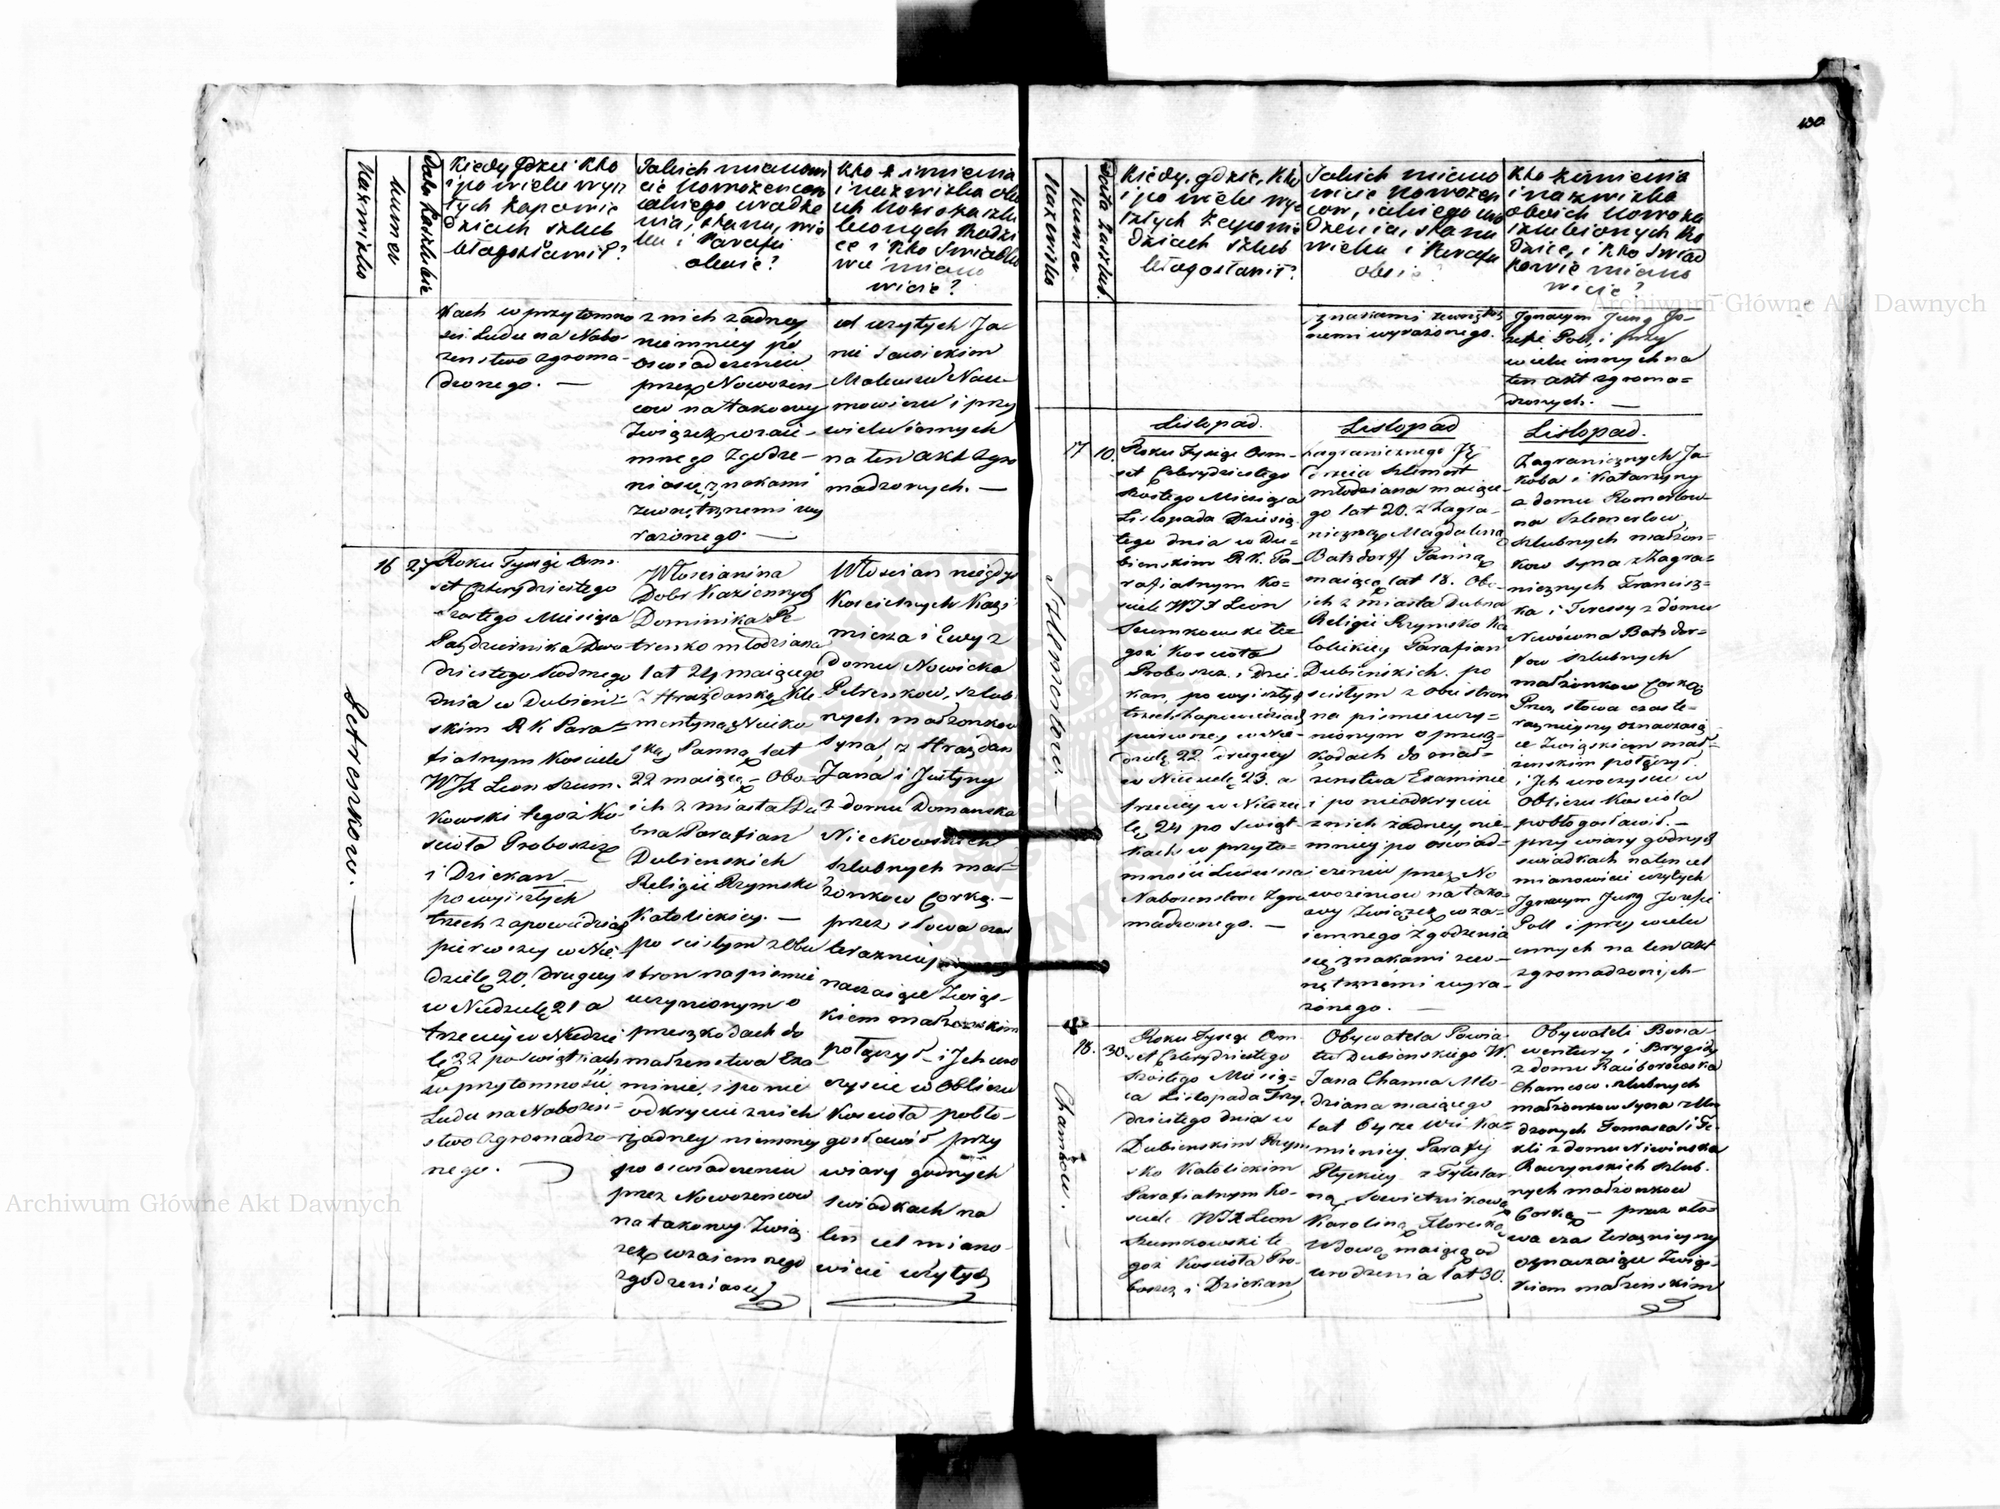 130
Nazwisko
Numer
Data Zaślubin
Kiedy gdzie kto
i po wielu wysz
łych zapowie
dziach szlub
błagosławił?
Jakich mianowi
cie Nowożencow
jakiego urodze
nia, stanu, wie
ku i Parafii
obojie?
Kto z imienia
i nazwiska obo
ich Nowo
bionych Rodzi
ce i kto Swiadko
wie miano
wicie?
kach w przytomno
sci Ludu na Nabo-
zenstwo zgroma-
dzonego. —
z nich zadney
niemniey po
oswiadczeniu
przez Nowozen-
cow na takowy
Związek wzaie-
mnego zgodze-
nia się, znakami
zewnętrznemi wy
rażonego. —
cel użytych Ja-
nie Sawickim
Mateuszu Nau-
mowiczu i przy
wielu innych
na ten akt zgro
madzonych. —
16
27
Petreszkow. —
Roku Tysiąc Om:
set Czterydziestego
Szostego Miesiąca
Października Dwa
dziestego Siodmego
dnia w Dubień-
skim R. K. Para-
fialnym Kosciele
WJX Leon Szum-
kowski tegoz Ko-
scioła Proboszcz
i Dziekan
po wyiszłych
trzech zapowiedziach
pierwszey w Nie-
dzielę 20, drugiey
w Niedzielę 21 a
trzeciey w Niedzie
lę 22 po swiątkach
w przytomności
Ludu na Nabożeń-
stwo zgromadzo-
nego.
Włoscianina
Dobr Kaziennych
Dominika Pe-
trenko młodziana
lat 24 maiącego
z Hrażdanką Kle-
mentyną Niecko
ską Panną lat
22 maiącą — Obo-
ich z miasta Du
bna Parafian
Dubienskich
Religii Rzymsko
Katolickiey. —
po scisłym z Obu
stron na pismie
uczynionym o
przeszkodach do
małżenstwa Exa
minie, i po nie
odkryciu z nich
żadney niemniey
po oswiadczeniu
przez Nowożencow
na takowy Zwią
zek wzaiemnego
zgodzenia się
Włoscian niegdyś
Koscielnych Kazi
mierza i Ewy z
domu Nowicka
Petrenkow, szlub
nych małżonkow
Syna, z Hrażdan
Jana i Justyny
z domu Domanska
Nieckowskich
szlubnych mał-
żonkow Corką. —
przez słowa czas
terazniey
naczaiące Związ-
kiem małżenskim
połączył — i Ich uro
czyscie w Obliczu
Kościoła pobło-
gosławił przy
wiary godnych
swiadkach na
ten cel miano-
wicie użytych
Nazwisko
Numer
Data Zaslub.
Kiedy, gdzie, kto
i po wielu wy
szłych Zapowie
dziach szlub
błagosławił?
Jakich miano
wicie Nowożen
cow, jakiego uro
dzenia, stanu
wieku i Parafii
Kto z imienia
i nazwiska
oboich Nowoza
szlubionych Ro
dzice, i kto Swiad
kowie miano
wicie?
znakami zewnętrz
nemi wyrażonego.
Ignacym Jung Jo-
zefie Poll, i przy
wielu innych na
ten akt zgroma-
dzonych. —
Listopad.
Listopad
Listopad.
17
10.
Szlemertow. —
Roku Tysiąc Om-
set Czterydziestego
Szostego Miesiąca
Listopada Dziesią-
tego dnia w Du-
bienskim R. K. Pa-
rafialnym Ko-
sciele WJX Leon
Szumkowski te-
goz Kościoła
Proboszcz i Dzie-
kan, po wyiszłych
trzech zapowiedziach
pierwszey w Nie-
dzielę 22 drugiey
w Niedzielę 23. a
trzeciey w Niedzie-
lę 24 po swiąt-
kach w przyto-
mności Ludu na
Nabozenstwo Zgro
madzonego. —
Zagranicznego
Szlemert
młodziana maiące-
go lat 20. z Zagra-
niczną Magdaleną
Batsdorff Panną
maiącą lat 18. Obo-
ich z miasta Dubna
Religii Rzymsko Ka
tolickiey Parafian
Dubienskich. po
scisłym z obu stron
na pismie uczy-
nionym o przesz-
kodach do mał-
żenstwa Examinie
i po nieodkryciu
z nich żadney, nie-
mniey po oswiad-
czeniu przez No
wożencow na tako-
wy Związek wza-
iemnego zgodzenia
się znakami zew-
nętrznemi wyra-
żonego. —
Zagranicznych Ja-
koba i Katarzyny
z domu Romerlow-
na Szlemertow,
szlubnych małżon-
kow syna z Zagra-
nicznych Francisz-
ka i Teressy z domu
Nowówna Batsdor-
fow szlubnych
małżonkow Corką
Przez słowa czas te-
razniejszy oznaczają-
ce Związkiem mał-
żenskim połączył.
i Ich uroczyscie w
Obliczu Kościoła
pobłogosławił. —
przy wiary godnych
swiadkach na ten cel
mianowicie użytych
Ignacym Jung Jozefie
Poll i przy wielu
innych na ten akt
zgromadzonych —
18.
30.
Chamcow. —
Roku Tysiąc Om-
set Czterydziestego
Szóstego Miesią-
ca Listopada Trzy
dziestego dnia w
Dubienskim Rzym
sko Katolickim
Parafialnym Ko-
sciele WJX Leon
Szumkowski te
goz Kościoła Pro-
boszcz i Dziekan
Obywatela Powia
tu Dubienskiego W.
Jana Chamca Mło-
dziana maiącego
Parafij
z Tytular
ną Sowietnikową
Karoliną
Wdową maiącą od
urodzenia lat 30.
Obywateli Bona-
wentury i Brygidy
z domu Raciborowska
Chamcow. szlubnych
małżonkow Syna z Uro
dzonych Tomasza i Te-
kli z domu Niwinska
Raczynskich szlub.
nych małżonkow
Corką — przez sło-
wa czas terazniejszy
oznaczaiące Związ-
kiem małżenskim
Archiwum Główne Akt Dawnych
Archiwum Główne Akt Dawnych